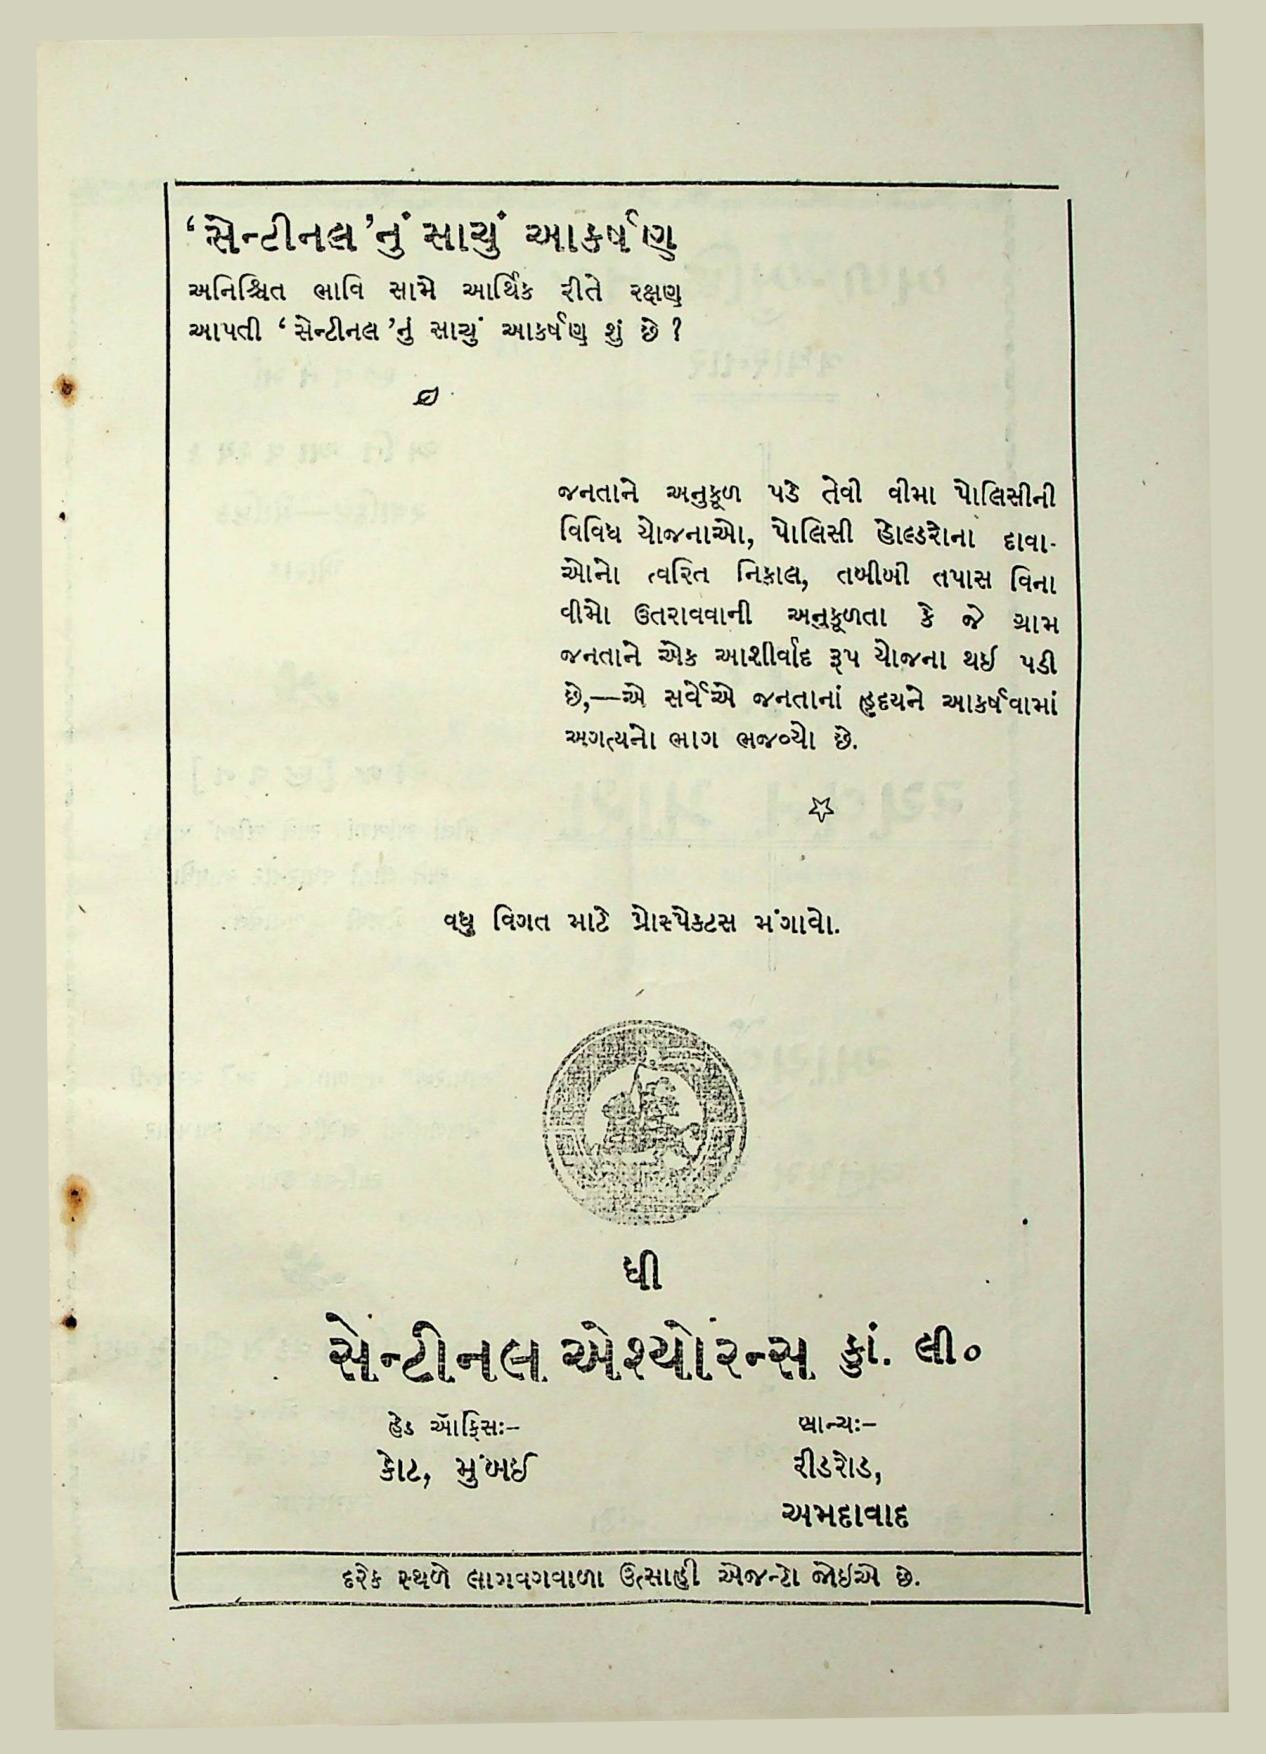 ‘સેન્ટીનલ’નું સાચું આકર્ષણ
અનિશ્ચિત ભાવિ સામે આર્થિક રીતે રક્ષણ
આપતી ‘સેન્ટીનલ’નું સાચું આકર્ષણ શું છે ?
જનતાને અનુકૂળ પડે તેવી વીમા પોલિસીની
વિવિધ યોજનાઓ, પોલિસી હોલ્ડરોના દાવા-
ઓનો ત્વરિત નિકાલ, તબીબી તપાસ વિના
વીમો ઉતરાવવાની અનુકૂળતા કે જે ગ્રામ
જનતાને એક આશીર્વાદ રૂપ યોજના થઈ પડી
છે,—એ સર્વેએ જનતાનાં હૃદયને આકર્ષવામાં
અગત્યનો ભાગ ભજવ્યો છે.
વધુ વિગત માટે પ્રોસ્પેક્ટસ મંગાવો.
ધી
સેન્ટીનલ એશ્યોરન્સ કાં. લી૦
હેડ ઑફિસઃ–
બ્રાન્ચઃ–
કોટ, મુંબઈ
રીડરોડ,
અમદાવાદ
દરેક સ્થળે લાગવગવાળા ઉત્સાહી એજન્ટો જોઇએ છે.